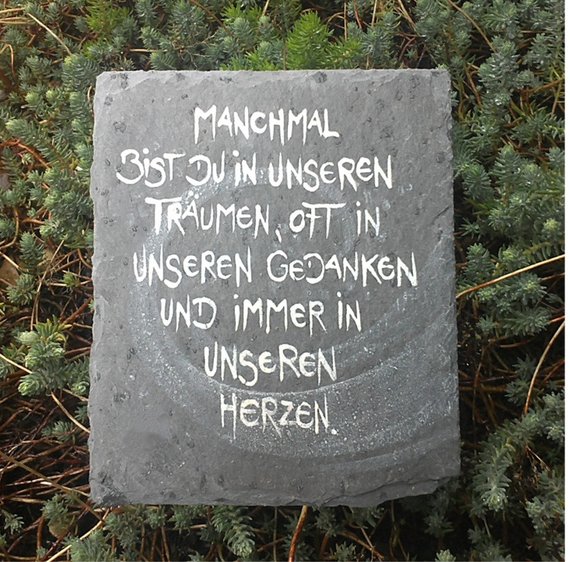 MANCHMAL
BIST DU IN UNSEREN
TRÄUMEN, OFT IN
UNSEREN GEDANKEN
UND IMMER IN
UNSEREN
HERZEN.